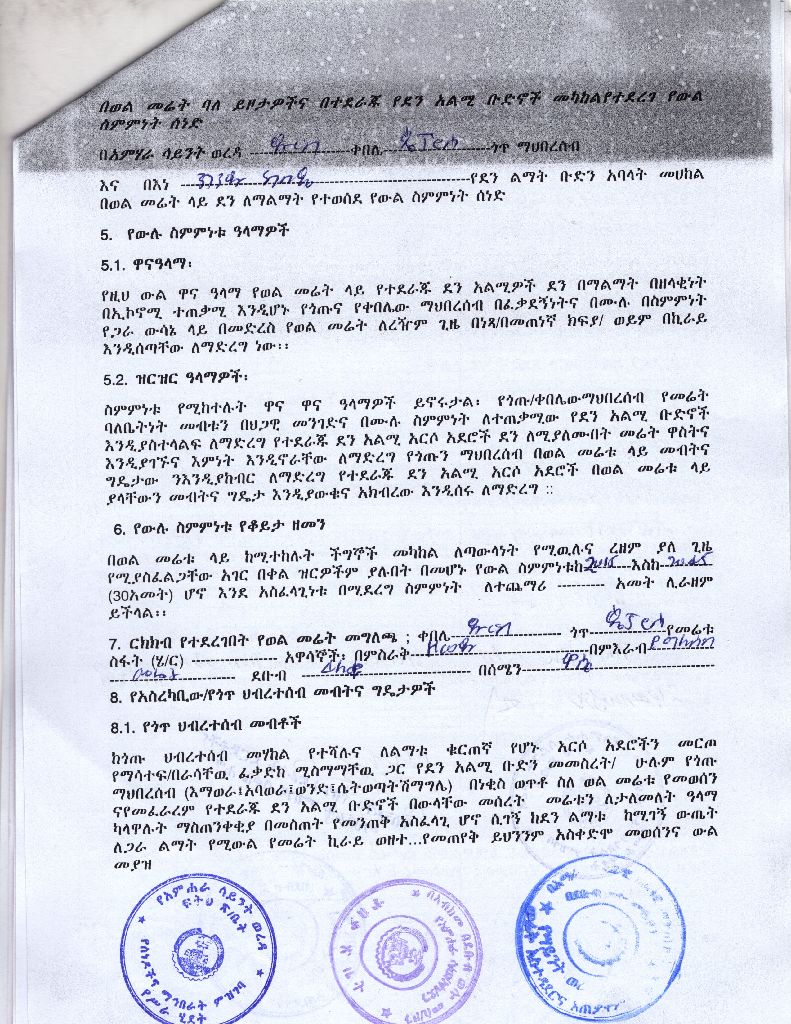 በወል መሬት ባለ ይዞታዎችና በተደራጁ የደን አልሚ ቡድኖች መካከልየተደረገ የውል
ስምምነት ሰነድ
በአምሃራ ሳይንት ወረዳ ---------------ቀበሌ-----------------ጎጥ ማህበረሰብ
እና በእነ -----------------------------------------የደን ልማት ቡድን አባላት መሀከል
በወል መሬት ላይ ደን ለማልማት የተወሰደ የውል ስምምነት ሰነድ
5. የውሉ ስምምነቱ ዓላማዎች
5.1. ዋናዓላማ፡
የዚህ ውል ዋና ዓላማ የወል መሬት ላይ የተደራጁ ደን አልሚዎች ደን በማልማት በዘላቂነት
በኢኮኖሚ ተጠቃሚ እንዲሆኑ የጎጡና የቀበሌው ማህበረሰብ በፈቃደኝነትና በሙሉ በስምምነት
የጋራ ውሳኔ ላይ በመድረስ የወል መሬት ለረዥም ጊዜ በነጻ/በመጠነኛ ክፍያ/ ወይም በኪራይ
እንዲሰጣቸው ለማድረግ ነው፡፡
5.2. ዝርዝር ዓላማዎች፡
ስምምነቱ የሚከተሉት ዋና ዋና ዓላማዎች ይኖሩታል፡ የጎጡ/ቀበሌውማህበረሰብ የመሬት
ባለቤትነት መብቱን በህጋዊ መንገድና በሙሉ ስምምነት ለተጠቃሚው የደን አልሚ ቡድኖች
እንዲያስተላልፍ ለማድረግ የተደራጁ ደን አልሚ አርሶ አደሮች ደን ለሚያለሙበት መሬት ዋስትና
እንዲያገኙና እምነት እንዲኖራቸው ለማድረግ የጎጡን ማህበረሰብ በወል መሬቱ ላይ መብትና
ግዴታው ንእንዲያከብር ለማድረግ የተደራጁ ደን አልሚ አርሶ አደሮች በወል መሬቱ ላይ
ያላቸውን መብትና ግዴታ እንዲያውቁና አክብረው እንዲሰሩ ለማድረግ ::
6. የውሉ ስምምነቱ የቆይታ ዘመን
በወል መሬቱ ላይ ከሚተከሉት ችግኞች መካከል ለጣውላነት የሚዉሉና ረዘም ያለ ጊዜ
የሚያስፈልጋቸው አገር በቀል ዝርዎችም ያሉበት በመሆኑ የውል ስምምነቱከ 2015 እስከ 2045
(30አመት) ሆኖ እንደ አስፈላጊነቱ በሚደረግ ስምምነት ለተጨማሪ ---------- አመት ሊራዘም
ይችላል፡፡
7. ርክክብ የተደረገበት የወል መሬት መግለጫ ; ቀበሌ----------------------- ጎጥ -----------የመሬቱ
ስፋት (ሄ/ር) ------------------ አዋሳኞች፡ በምስራቅ----------------------------በምእራብ
---------------------- ደቡብ ------------------------------ በሰሜን---------------------------------------
8. የአስረካቢው/የጎጥ ህብረተሰብ መብትና ግዴታዎች
8.1. የጎጥ ህብረተሰብ መብቶች
ከጎጡ ህብረተሰብ መሃከል የተሻሉና ለልማቱ ቁርጠኛ የሆኑ አርሶ አደሮችን መርጦ
የማሳተፍ/በራሳቸዉ ፈቃድከ ሚስማማቸዉ ጋር የደን አልሚ ቡድን መመስረት/ ሁሉም የጎጡ
ማህበረሰብ (እማወራ፤አባወራ፤ወንድ፤ሴትወጣትሽማግሌ) በነቂስ ወጥቶ ስለ ወል መሬቱ የመወሰን
ናየመፈራረም የተደራጁ ደን አልሚ ቡድኖች በውላቸው መሰረት መሬቱን ለታለመለት ዓላማ
ካላዋሉት ማስጠንቀቂያ በመስጠት የመንጠቅ አስፈላጊ ሆኖ ሲገኝ ከደን ልማቱ ከሚገኝ ውጤት
ለጋራ ልማት የሚውል የመሬት ኪራይ ወዘተ...የመጠየቅ ይህንንም አስቀድሞ መወሰንና ውል
መያዝ
የአምሐራ ሳይንት ወረዳ
ፍትህ ጽ/ቤት
የሰነዶችና ማኅበራት ምዝገባ
የሥራ ሂደት